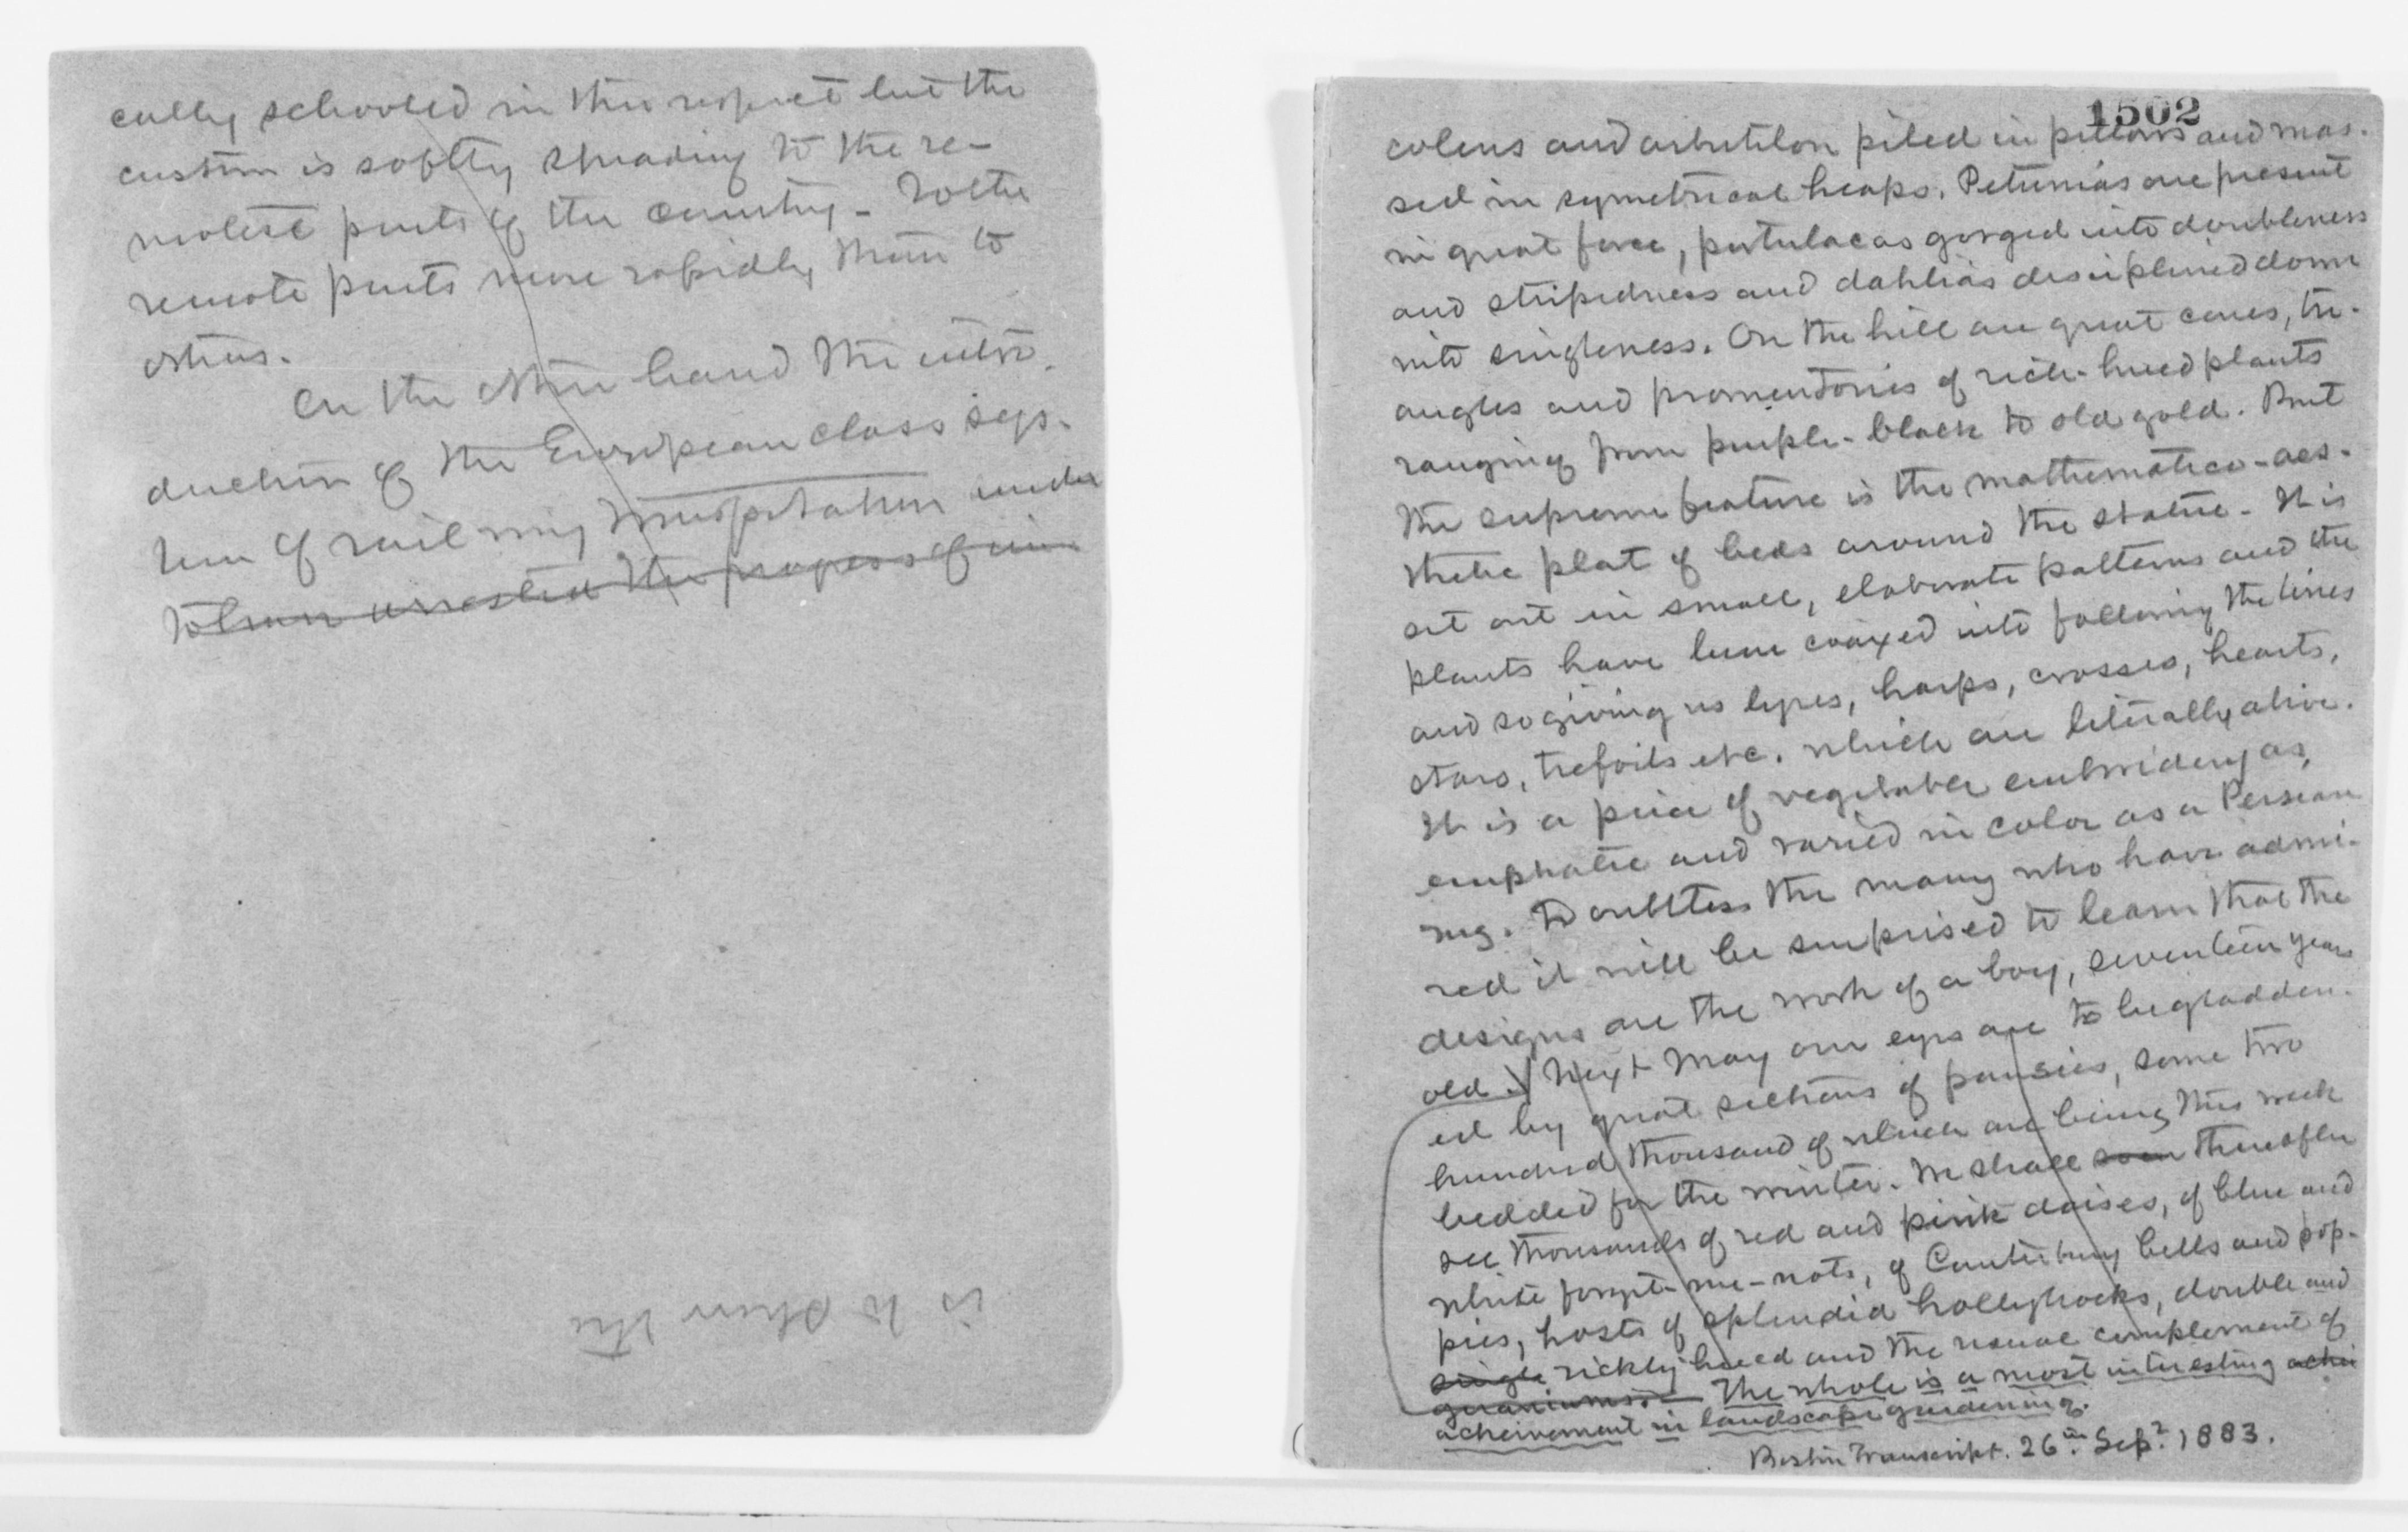 cally schooled in this respect but the
custom is softly spreading to the re-
motest parts of the country - To the
remote parts more rapidly than to
others.
On the other hand the intro-
duction of the European class sys-
tem of rail way transportation under
to have arrested the progress of im-
is to show the
1502
coleus and arbutilon piled in pillows and mas-
sed in symetrical heaps. Petunias are present
in great force, portulacas gorged into doubleness
and stripedness and dahlias disciplined down
into singleness. On the hill are great cones, tri-
angles and promontories of rich-hued plants
ranging from purple-black to old gold. But
the supreme feature is the mathematico-aes-
thetic plat of beds around the statue - It is
set out in small, elaborate patterns and the
plants have been coaxed into following the lines
and so giving us lyres, harps, crosses, hearts,
stars, trefoils etc. which are literally alive.
It is a piece of vegetable embroidery as
emphatic and varied in color as a Persian
rug. Doubtless the many who have admi-
red it will be surprised to learn that the
designs are the work of a boy, seventeen years
old. Next May our eyes are to be gladden-
ed by great sections of pansies, some two
hundred thousand of which are being this week
bedded for the winter. We shall soon thereafter
see thousands of red and pink daises, of blue and
white forget-me-nots, of Canterbury bells and pop-
pies, hosts of splendid hollyhocks, double and
single richly hued and the usual complement of
geraniums. The whole is a most interesting achei
acheivement in landscape gardening.
Boston Transcript. 26th Sept. 1883.